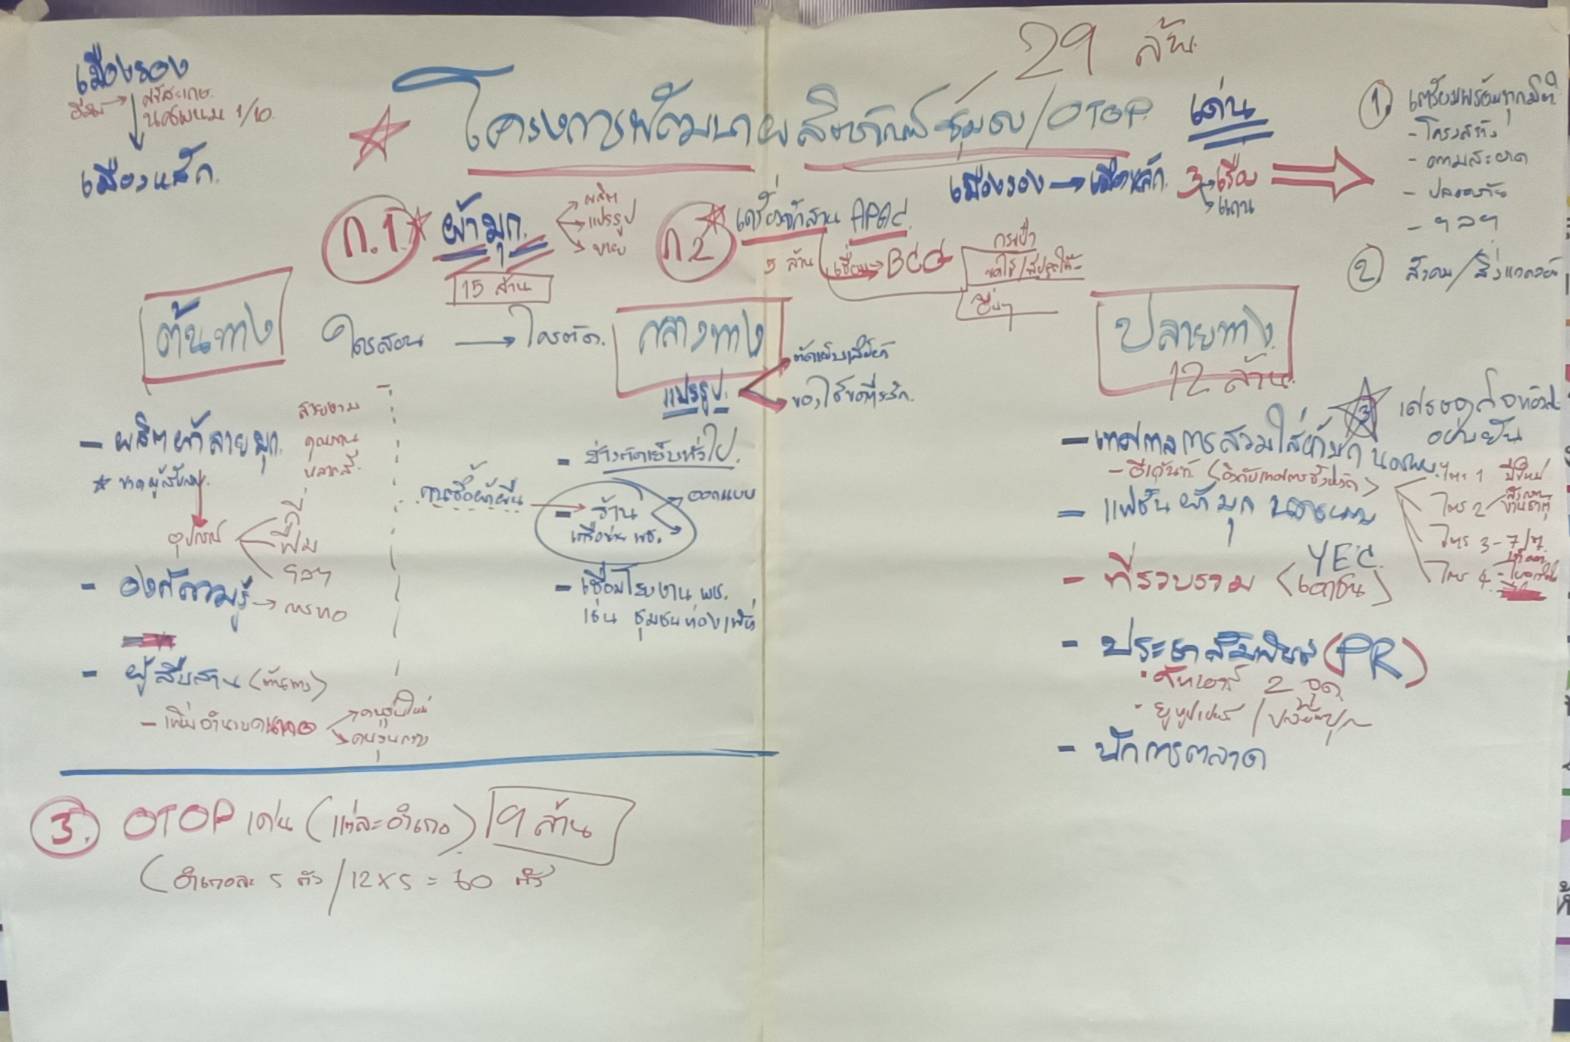 29 ล้าน
เมืองรอง
นครพนม 1/10
เมืองหลัก
โครงการพัฒนาผลิตภัณฑ์ชุมชน/OTOP เด่น
เมืองรอง → เมืองหลัก 3 เรือง
แดน
① เตรียมพร้อมทุกมิติ
- โครงสร้าง
- ความสะอาด
- ปลอดภัย
- ฯลฯ
② สังคม/สิ่งแวดล้อม
ก.1 ผ้ามุก
ผลิต
แปรรูป
ขาย
15 ล้าน
ก.2 เครื่องจักสาน
5 ล้าน เชื่อม → BCG
กระเป๋า
อื่นๆ
ต้นทาง
ใครสอน → ใครตัด
กลางทาง
แปรรูป
ตัดเย็บเสื้อผ้า
ของใช้ของที่ระลึก
ปลายทาง
12 ล้าน
- ผลิตผ้าลายมุก
ลวดลาย
คุณภาพ
หลากสี
อุปกรณ์
กี่
ฟืม
ฯลฯ
- องค์ความรู้ → การทอ
- ผู้สืบสาน (ต้นทาง)
- เพิ่มจำนวนคนทอ
คนรุ่นใหม่
คนรุ่นกลาง
- ช่างตัดเย็บทั่วไป
การซื้อผ้าผืน
- ร้าน
เครือข่าย พช.
ออกแบบ
- เชื่อมโยงงาน พช.
เช่น ชุมชนท่องเที่ยว
- เทศกาลการสวมใส่ผ้ามุกนครพนม
- แฟชั่นผ้ามุกนครพนม
ไตร 1 ปีใหม่
ไตร 2
ไตร 3 - 7/7
ไตร 4
- ที่รวบรวม
YEC
(เอกชน)
- ประชาสัมพันธ์ (PR)
• คัทเอาท์ 2 จุด
- นักการตลาด
3. OTOP เด่น (แต่ละอำเภอ) 9 ล้าน
(อำเภอละ 5 ตัว/12x5 = 60 ตัว